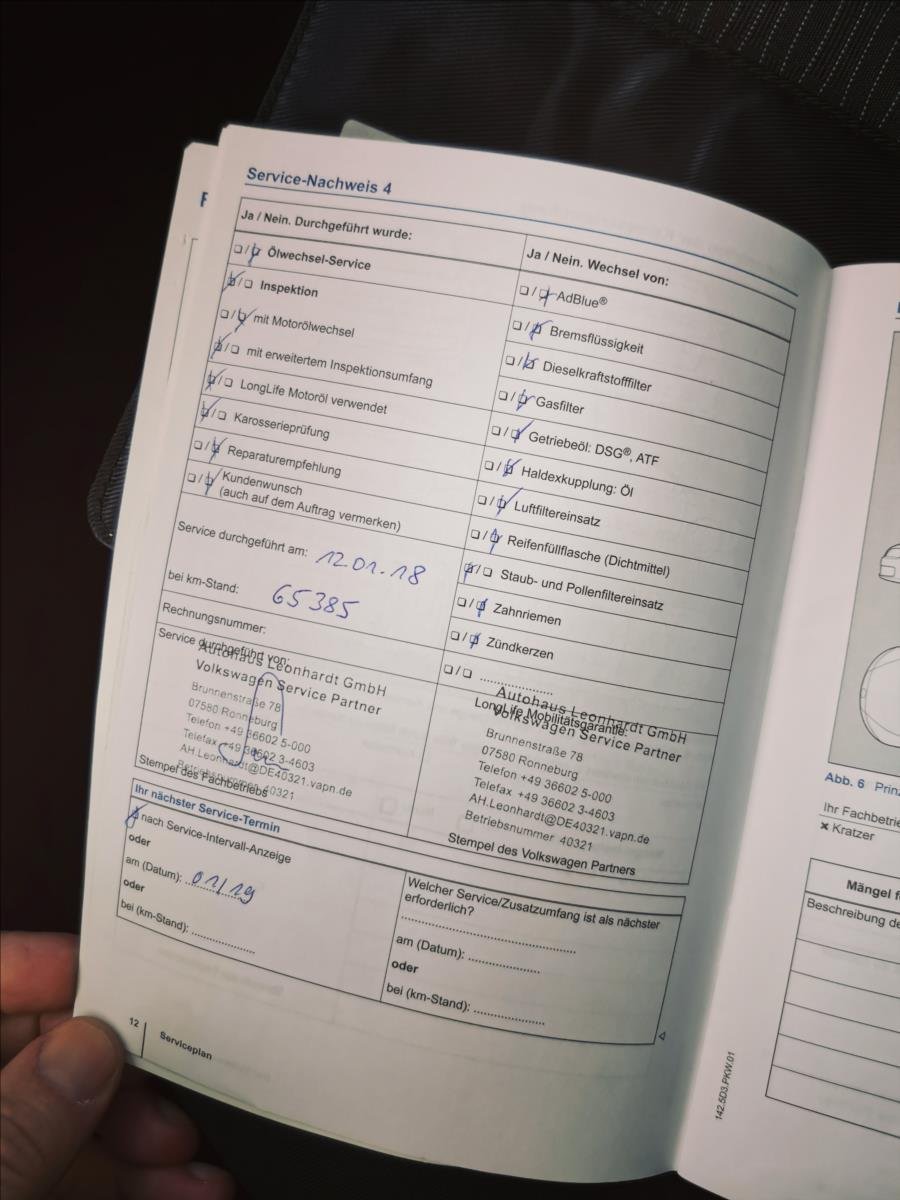 Service-Nachweis 4
Ja / Nein. Durchgeführt wurde:
❏ / ❏ Ölwechsel-Service
❏ / ❏ Inspektion
❏ / ❏ mit Motorölwechsel
❏ / ❏ mit erweitertem Inspektionsumfang
❏ / ❏ LongLife Motoröl verwendet
❏ / ❏ Karosserieprüfung
❏ / ❏ Reparaturempfehlung
❏ / ❏ Kundenwunsch
(auch auf dem Auftrag vermerken)
Service durchgeführt am: 12.01.18
bei km-Stand: 65385
Rechnungsnummer:
Service durchgeführt von:
Autohaus Leonhardt GmbH
Volkswagen Service Partner
Brunnenstraße 78
07580 Ronneburg
Telefon +49 36602 5-000
Telefax +49 36602 3-4603
AH.Leonhardt@DE40321.vapn.de
Betriebsnummer 40321
Stempel des Fachbetriebs
Ja / Nein. Wechsel von:
❏ / ❏ AdBlue®
❏ / ❏ Bremsflüssigkeit
❏ / ❏ Dieselkraftstofffilter
❏ / ❏ Gasfilter
❏ / ❏ Getriebeöl: DSG®, ATF
❏ / ❏ Haldexkupplung: Öl
❏ / ❏ Luftfiltereinsatz
❏ / ❏ Reifenfüllflasche (Dichtmittel)
❏ / ❏ Staub- und Pollenfiltereinsatz
❏ / ❏ Zahnriemen
❏ / ❏ Zündkerzen
❏ / ❏ ....................
Autohaus Leonhardt GmbH
LongLife Mobilitätsgarantie:
Volkswagen Service Partner
Brunnenstraße 78
07580 Ronneburg
Telefon +49 36602 5-000
Telefax +49 36602 3-4603
AH.Leonhardt@DE40321.vapn.de
Betriebsnummer 40321
Stempel des Volkswagen Partners
Ihr nächster Service-Termin
❏ nach Service-Intervall-Anzeige
oder
am (Datum): 01/19
oder
bei (km-Stand): ..................
Welcher Service/Zusatzumfang ist als nächster
erforderlich?
..................................................
am (Datum): ....................
oder
bei (km-Stand): ....................
12
Serviceplan
142.5D3.PKW.01
Abb. 6 Prinz
Ihr Fachbetrie
× Kratzer
Mängel f
Beschreibung de